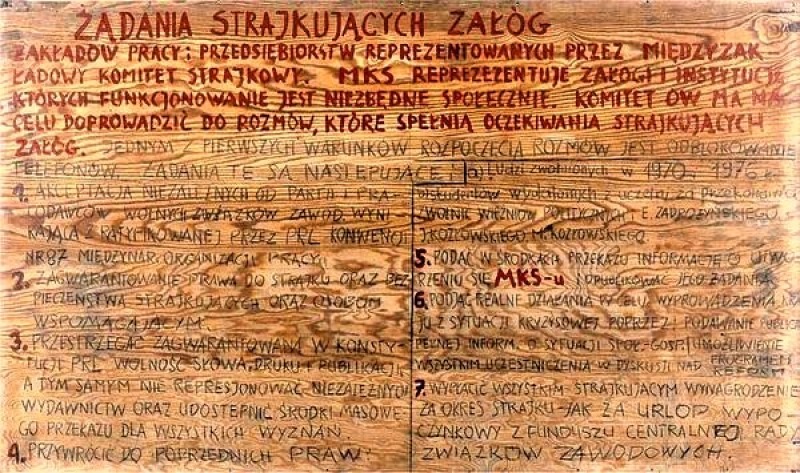 ŻĄDANIA STRAJKUJĄCYCH ZAŁÓG
ZAKŁADÓW PRACY i PRZEDSIĘBIORSTW REPREZENTOWANYCH PRZEZ MIĘDZYZAK
ŁADOWY KOMITET STRAJKOWY. MKS REPREZEZENTUJE ZAŁOGI I INSTYTUCJE
KTÓRYCH FUNKCJONOWANIE JEST NIEZBĘDNE SPOŁECZNIE. KOMITET ÓW MA NA
CELU DOPROWADZIĆ DO ROZMÓW, KTÓRE SPEŁNIĄ OCZEKIWANIA STRAJKUJĄCYCH
ZAŁÓG. JEDNYM Z PIERWSZYCH WARUNKÓW ROZPOCZĘCIA ROZMÓW JEST ODBLOKOWANIE
TELEFONÓW. ŻĄDANIA TE SĄ NASTĘPUJĄCE:
1. AKCEPTACJA NIEZALEŻNYCH OD PARTII I PRA-
CODAWCÓW WOLNYCH ZWIĄZKÓW ZAWOD. WYNI-
KAJĄCA Z RATYFIKOWANEJ PRZEZ PRL KONWENCJI
NR 87 MIĘDZYNAR. ORGANIZACJI PRACY.
2. ZAGWARANTOWANIE PRAWA DO STRAJKU ORAZ BEZ
PIECZEŃSTWA STRAJKUJĄCYCH ORAZ OSOBOM
WSPOMAGAJĄCYM.
3. PRZESTRZEGAĆ ZAGWARANTOWANĄ W KONSTY-
TUCJI PRL WOLNOŚĆ SŁOWA, DRUKU I PUBLIKACJI
A TYM SAMYM NIE REPRESJONOWAĆ NIEZALEŻNYCH
WYDAWNICTW ORAZ UDOSTĘPNIĆ ŚRODKI MASOWE-
GO PRZEKAZU DLA WSZYSTKICH WYZNAŃ.
4. PRZYWRÓCIĆ DO POPRZEDNICH PRAW:
a) Ludzi zwolnionych w 1970 i 1976 r.
studentów wydalonych z uczelni za przekonania
ZWOLNIĆ WIĘŹNIÓW POLITYCZNYCH I E. ZADROŻYŃSKIEGO
J. KOZŁOWSKIEGO M. KOZŁOWSKIEGO.
5. PODAĆ W ŚRODKACH PRZEKAZU INFORMACJĘ O UTWO-
RZENIU SIĘ MKS-u I OPUBLIKOWAĆ JEGO ŻĄDANIA
6. PODJĄĆ REALNE DZIAŁANIA W CELU WYPROWADZENIA KRA
JU Z SYTUACJI KRYZYSOWEJ POPRZEZ: PODAWANIE PUBLICZ
PEŁNEJ INFORM. O SYTUACJI SPOŁ.-GOSP. UMOŻLIWIENIE
WSZYSTKIM UCZESTNICZENIA W DYSKUSJI NAD PROGRAMEM
REFORM
7. WYPŁACIĆ WSZYSTKIM STRAJKUJĄCYM WYNAGRODZENIE
ZA OKRES STRAJKU – JAK ZA URLOP WYPO
CZYNKOWY Z FUNDUSZU CENTRALNEJ RADY
ZWIĄZKÓW ZAWODOWYCH.